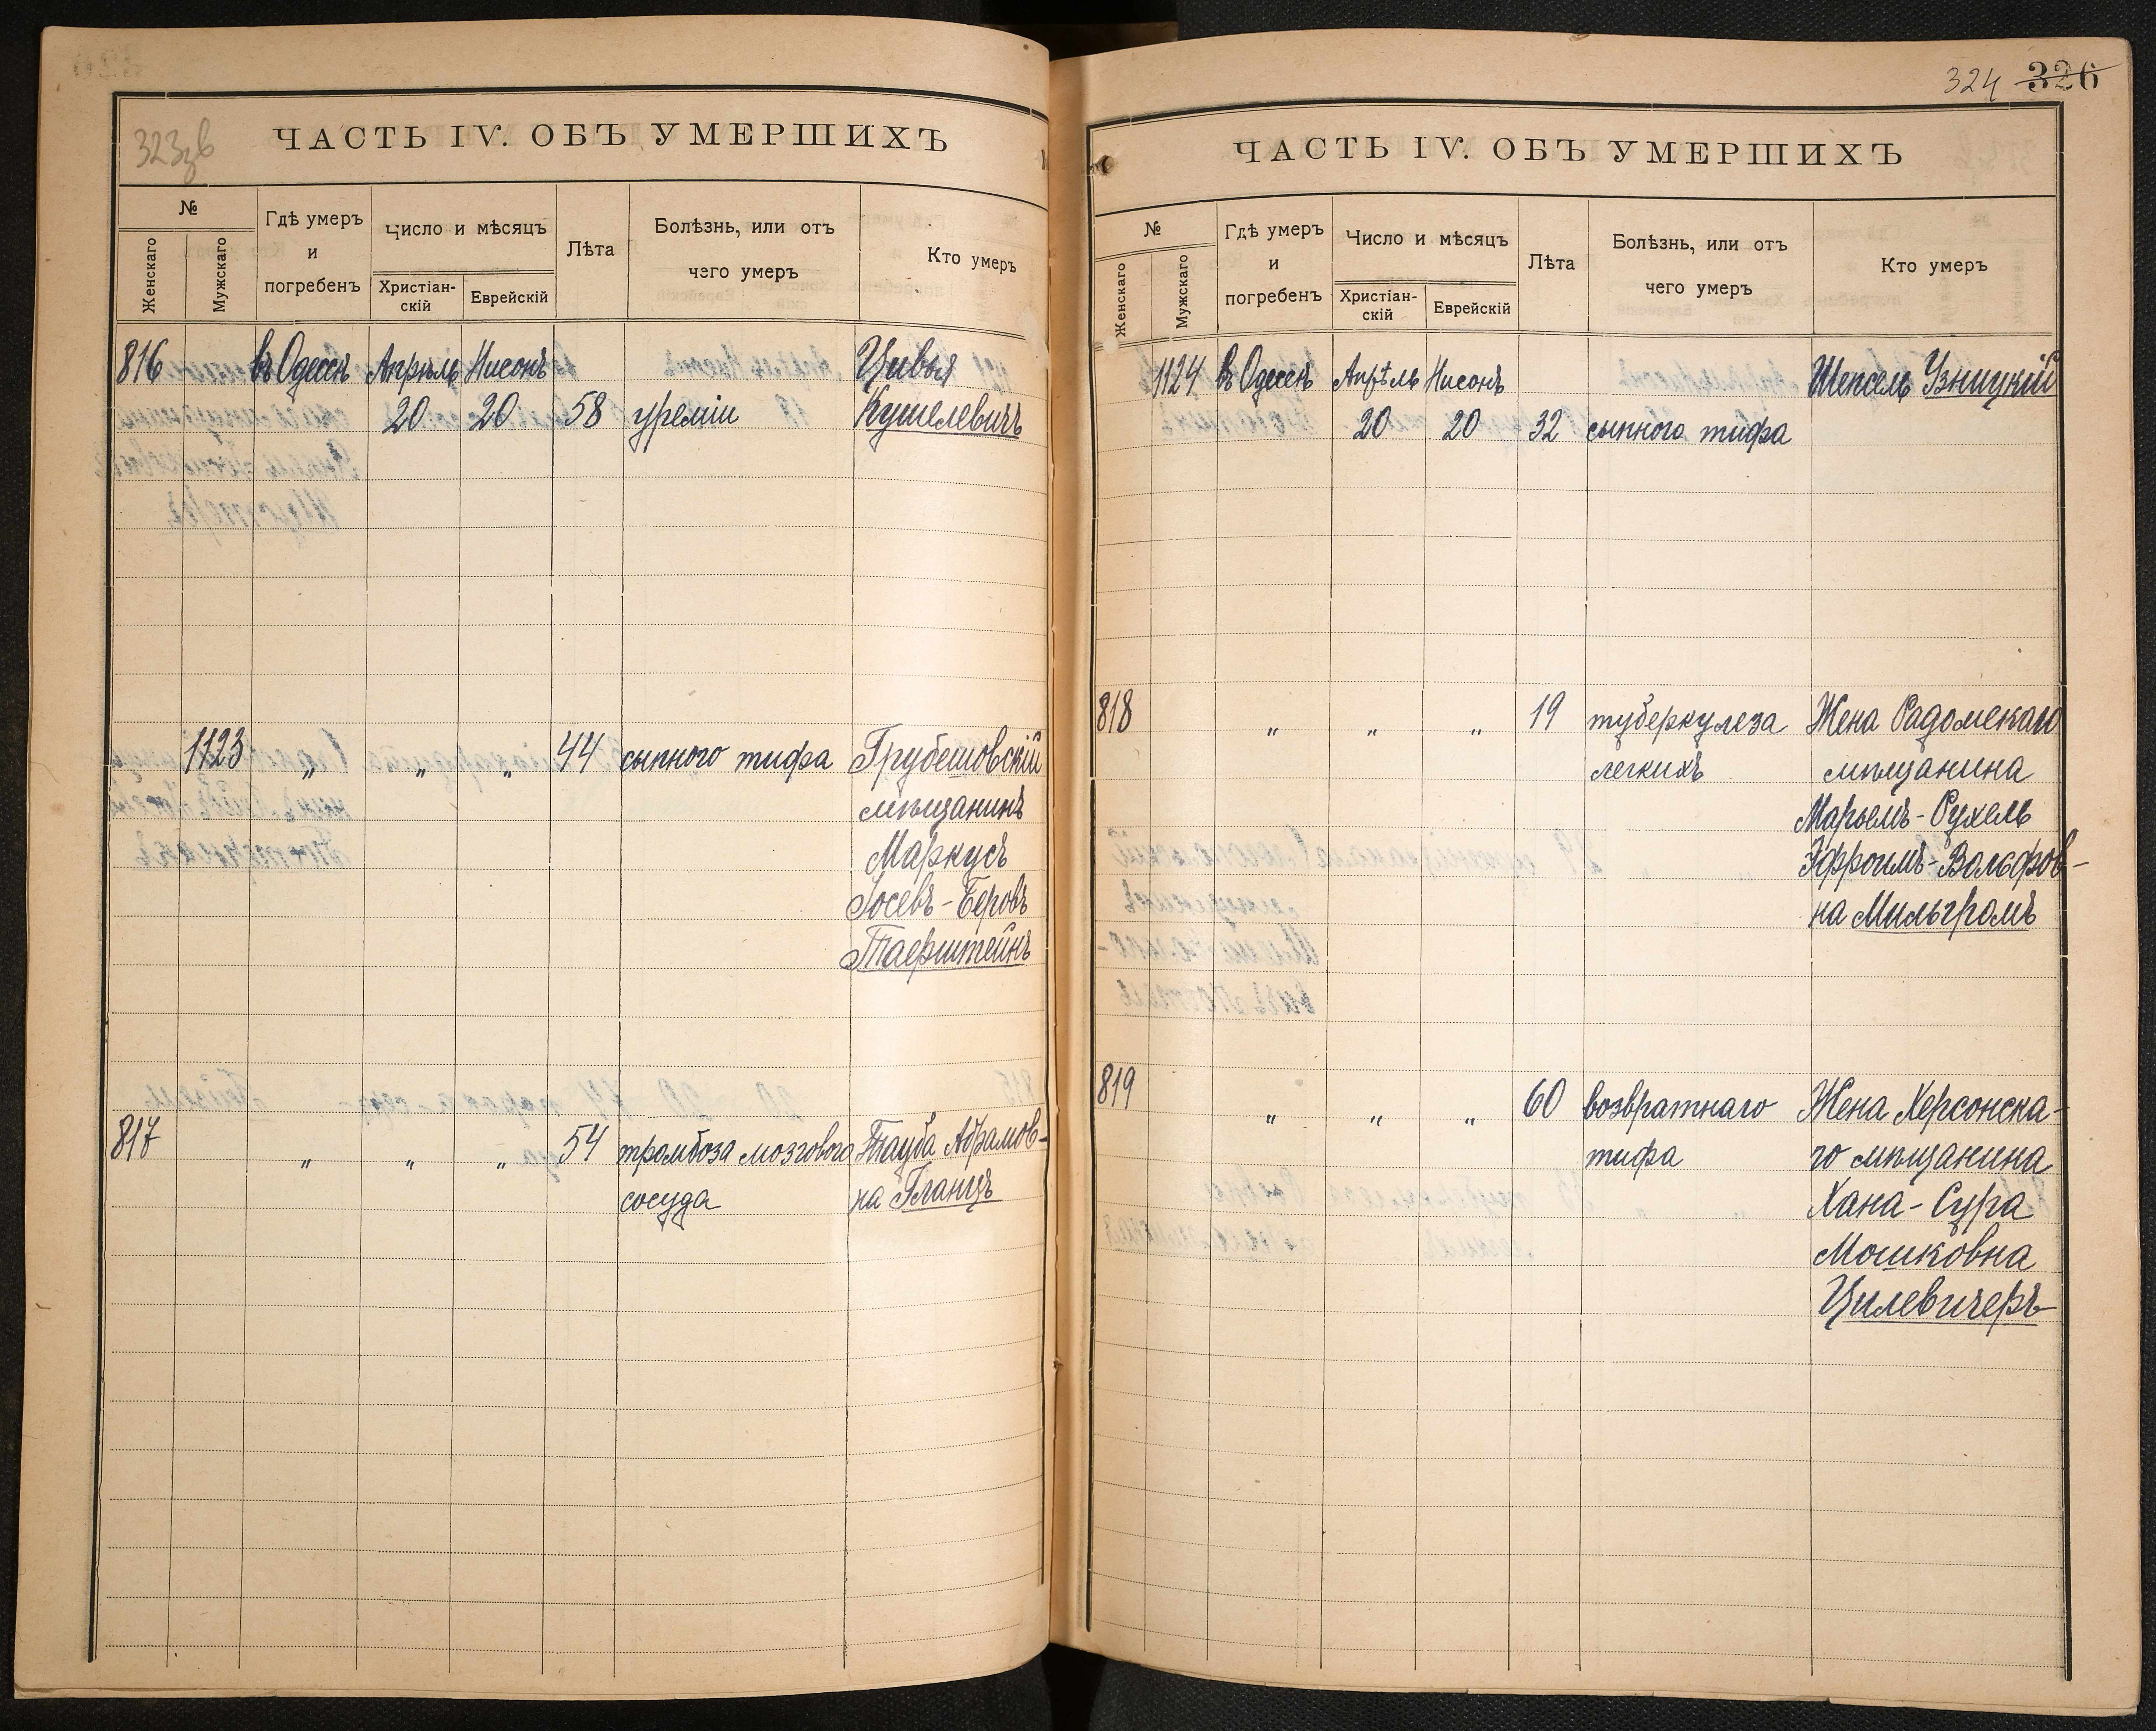 323зв
ЧАСТЬ IV. ОБЪ УМЕРШИХЪ
№
Женскаго
Мужскаго
Гдѣ умеръ
и
погребенъ
Число и мѣсяцъ
Христіан-
скій
Еврейскій
Лѣта
Болѣзнь, или отъ
чего умеръ
Кто умеръ
816 въ Одессѣ Апрѣль Нисонъ Цивья
20 20 58 уреміи Кушелевичъ
1123 „ „ „ 44 сыпного тифа Грубешовскій
мѣщанинъ
Маркусъ
Іосевъ-Беровъ
Таерштейнъ
817 „ „ „ 54 тромбоза мозгового Тауба Абрамов-
сосуда на Гланцъ
324 326
ЧАСТЬ IV. ОБЪ УМЕРШИХЪ
№
Женскаго
Мужскаго
Гдѣ умеръ
и
погребенъ
Число и мѣсяцъ
Христіан-
скій
Еврейскій
Лѣта
Болѣзнь, или отъ
чего умеръ
Кто умеръ
1124 въ Одессѣ Апрѣль Нисонъ Шепсель Узницкій
20 20 32 сыпного тифа
818 „ „ „ 19 туберкулеза Жена Радомскаго
легкихъ мѣщанина
Марьемъ-Рухель
Эфроимъ-Вольфов-
на Мильгромъ
819 „ „ „ 60 возвратнаго Жена Херсонска-
тифа го мѣщанина
Хана-Сура
Мошковна
Цилевичеръ